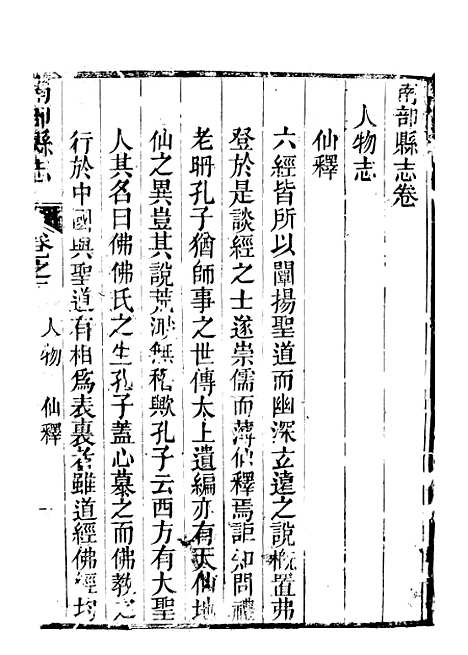 南部縣志卷
人物志
仙釋
六經皆所以闡揚聖道而幽深玄遠之說概置弗
登於是談經之士遂崇儒而薄仙釋焉詎知問禮
老聃孔子猶師事之世傳太上遺編亦有天仙地
仙之異豈其說荒渺無稽歟孔子云西方有大聖
人其名曰佛佛氏之生孔子蓋心慕之而佛教之
行於中國與聖道有相為表裏者雖道經佛經均
南部縣志
卷之
人物 仙釋